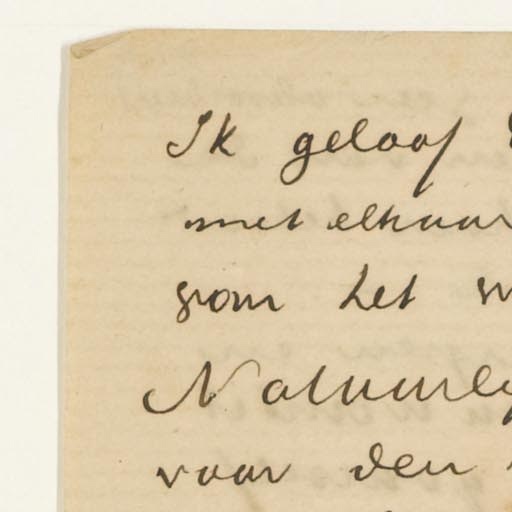 Ik geloof
met elkaar
om het
Natuurly
voor den